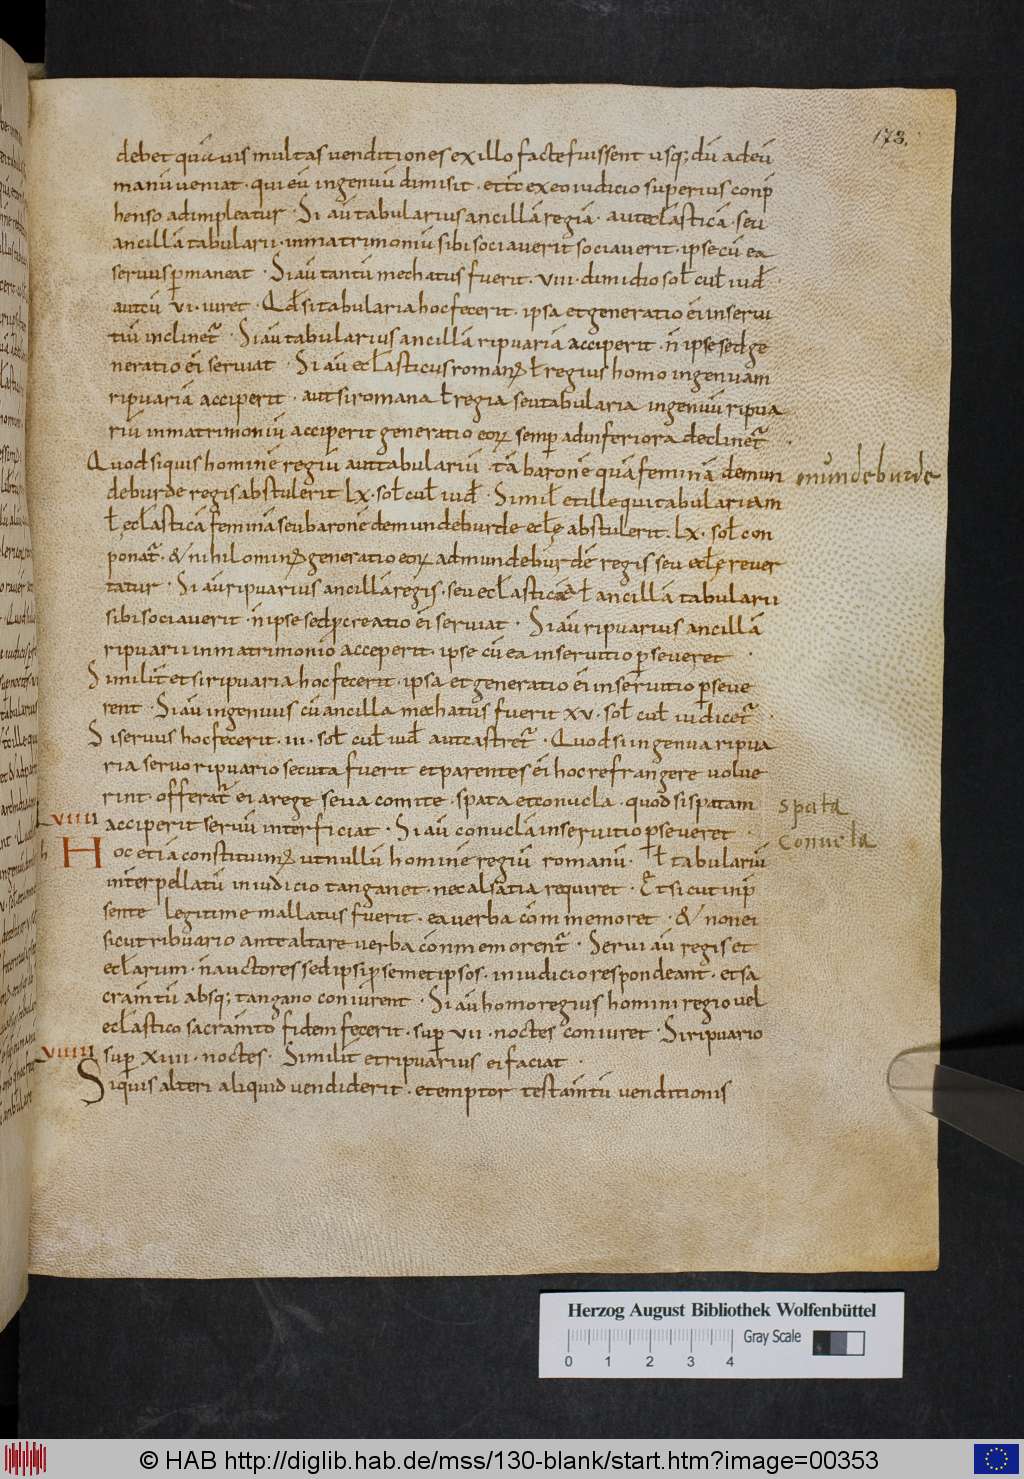 173.
debet qua uis multas uenditiones ex illo facte fuissent usq; dū ad eū
manū ueniat · qui eū ingenuū dimisit · et tc̄ ex eo iudicio superius conp̄
henso adimpleatur · Si aū tabularius ancillā regiā · aut eclasticā · seu
ancillā tabularii · in matrimoniū sibi sociauerit sociauerit · ipse cū ea
seruus ꝑmaneat · Si aū tantū mechatus fuerit · VIII · dimidio sol̄ cul̄ iud̄ ·
aut cū VI · iuret · Qd̄ si tabularia hoc fecerit · ipsa et generatio ei in serui
tiū inclinet̄ · Si aū tabularius ancillā ripuariā acciperit · n̄ ipse sed ge
neratio ei seruiat · Si aū ecl̄asticus roman; ł regius homo ingenuam
ripuariā acciperit · aut si romana ł regia seu tabularia ingenuū ripua
riū in matrimoniū acciperit generatio eoꝝ semꝑ ad inferiora declinet̄ ·
Quod siquis hominē regiū aut tabulariū · tā baronē quā feminā demun
deburde regis abstulerit LX · sol̄ cul̄ iud̄ · Simil̄ et ille qui tabulariam
ł ecl̄asticā feminā seu baronē demundeburde ecl̄ę abstulerit · LX · sol̄ con
ponat̄ · & nihilomin; generatio eoꝝ ad mundeburdē regis seu ecl̄ę reuer
tatur · Si aū ripuarius ancillā regis · seu ecl̄asticā ł ancillā tabularii
sibi sociauerit · n̄ ipse sed ꝓcreatio ei seruiat · Si aū ripuarius ancillā
ripuarii in matrimonio acceperit · ipse cū ea in seruitio ꝑseueret ·
Similit̄ et si ripuaria hoc fecerit · ipsa et generatio ei in seruitio ꝑseue
rent · Si aū ingenuus cū ancilla mechatus fuerit XV · sol̄ cul̄ iudicet̄ ·
Si seruus hoc fecerit · III · sol̄ cul̄ iud̄ aut castret̄ · Quod si ingenua ripua
ria seruo ripuario secuta fuerit et parentes ei hoc refrangere uolue
rint · offerat̄ ei a rege seu a comite · spata et conucla · quod si spatam
acciperit seruū interficiat · Si aū conuclā in seruitio ꝑseueret ·
LVIIII
Hoc etiā constituim; ut nullū hominē regiū romanū · ł tabulariū
interpellatū in iudicio tanganet · nec alsatia requiret · Et sicut in p̄
sente legitime mallatus fuerit · ea uerba cōmmemoret · & non ei
sicut ribuario ante altare uerba conmemorent̄ · Serui aū regis et
ecl̄arum · n̄ auctores sed ipsi ꝓ semet ipsos · in iudicio respondeant · et sa
cram̄tū absq; tangano coniurent · Si aū homo regius homini regio uel
ecl̄astico sacram̄to fidem fecerit · suꝑ VII · noctes coniuret · Si ripuario
suꝑ XIIII · noctes · Similit̄ et ripuarius ei faciat ·
Siquis alteri aliquid uendiderit · et emptor testam̄tū uenditionis
mundeburde
spata
Conucla
Herzog August Bibliothek Wolfenbüttel
Gray Scale
0 1 2 3 4
© HAB http://diglib.hab.de/mss/130-blank/start.htm?image=00353